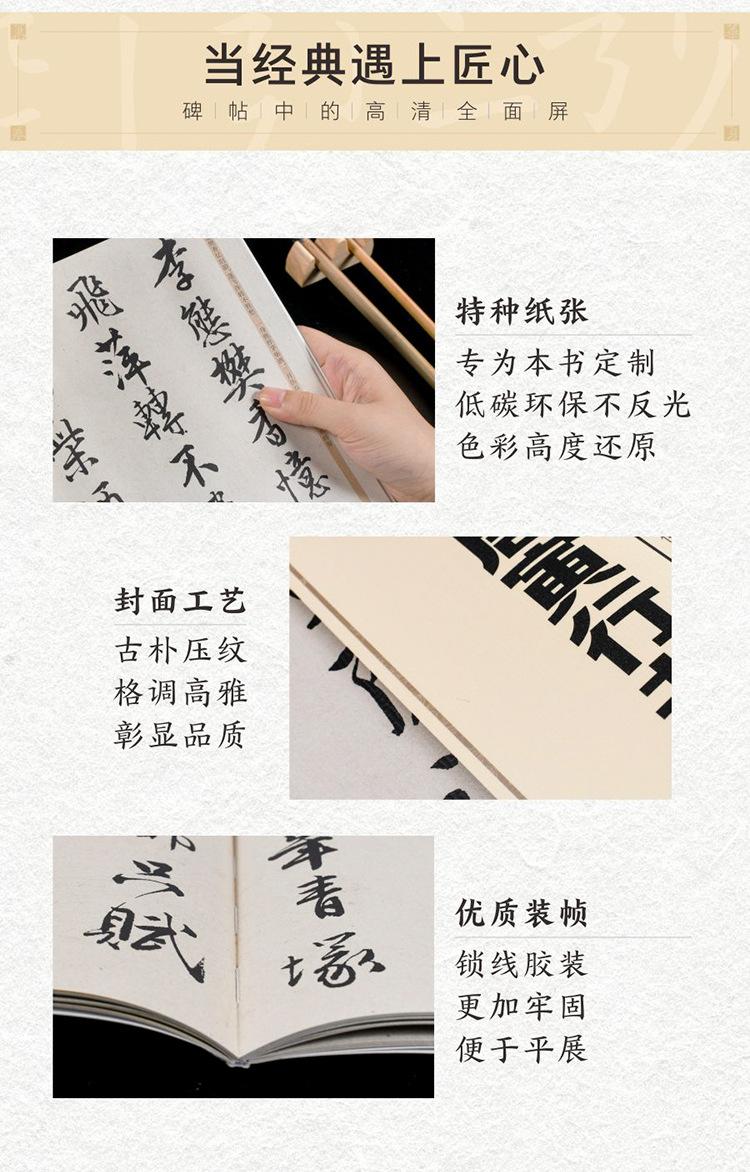 当经典遇上匠心
碑帖中的高清全面屏
李態樊素憶
飛萍轉不
業
特种纸张
专为本书定制
低碳环保不反光
色彩高度还原
封面工艺
古朴压纹
格调高雅
彰显品质
行
青
塚
興
賦
优质装帧
锁线胶装
更加牢固
便于平展